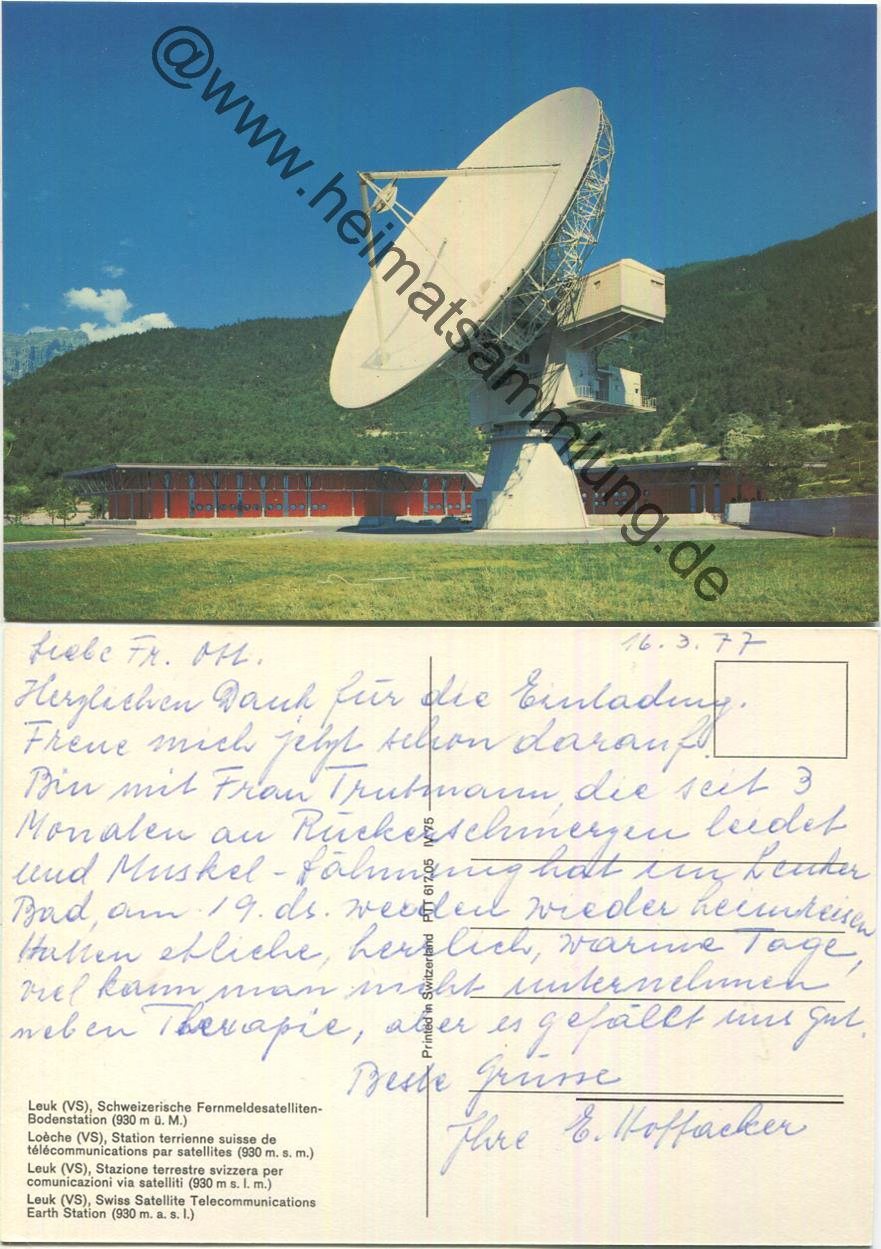 @www.heimatsammlung.de
16.3.77
Liebe Fr. Ott.
Herzlichen Dank für die Einladung.
Freue mich jetzt schon darauf.
Bin mit Frau Trutmann, die seit 3
Monaten an Rückerschmerzen leidet
und Muskel-Lähmung hat im Leuker
Bad, am 19. ds. werden wieder heimreisen
Hatten etliche, herrlich, warme Tage,
viel kann man nicht unternehmen
neben Therapie, aber es gefällt uns gut.
Beste Grüsse
Ihre E. Hoffacker
Printed in Switzerland PTT 617.05 IV 75
Leuk (VS), Schweizerische Fernmeldesatelliten-
Bodenstation (930 m ü. M.)
Loèche (VS), Station terrienne suisse de
télécommunications par satellites (930 m. s. m.)
Leuk (VS), Stazione terrestre svizzera per
comunicazioni via satelliti (930 m s. l. m.)
Leuk (VS), Swiss Satellite Telecommunications
Earth Station (930 m. a. s. l.)